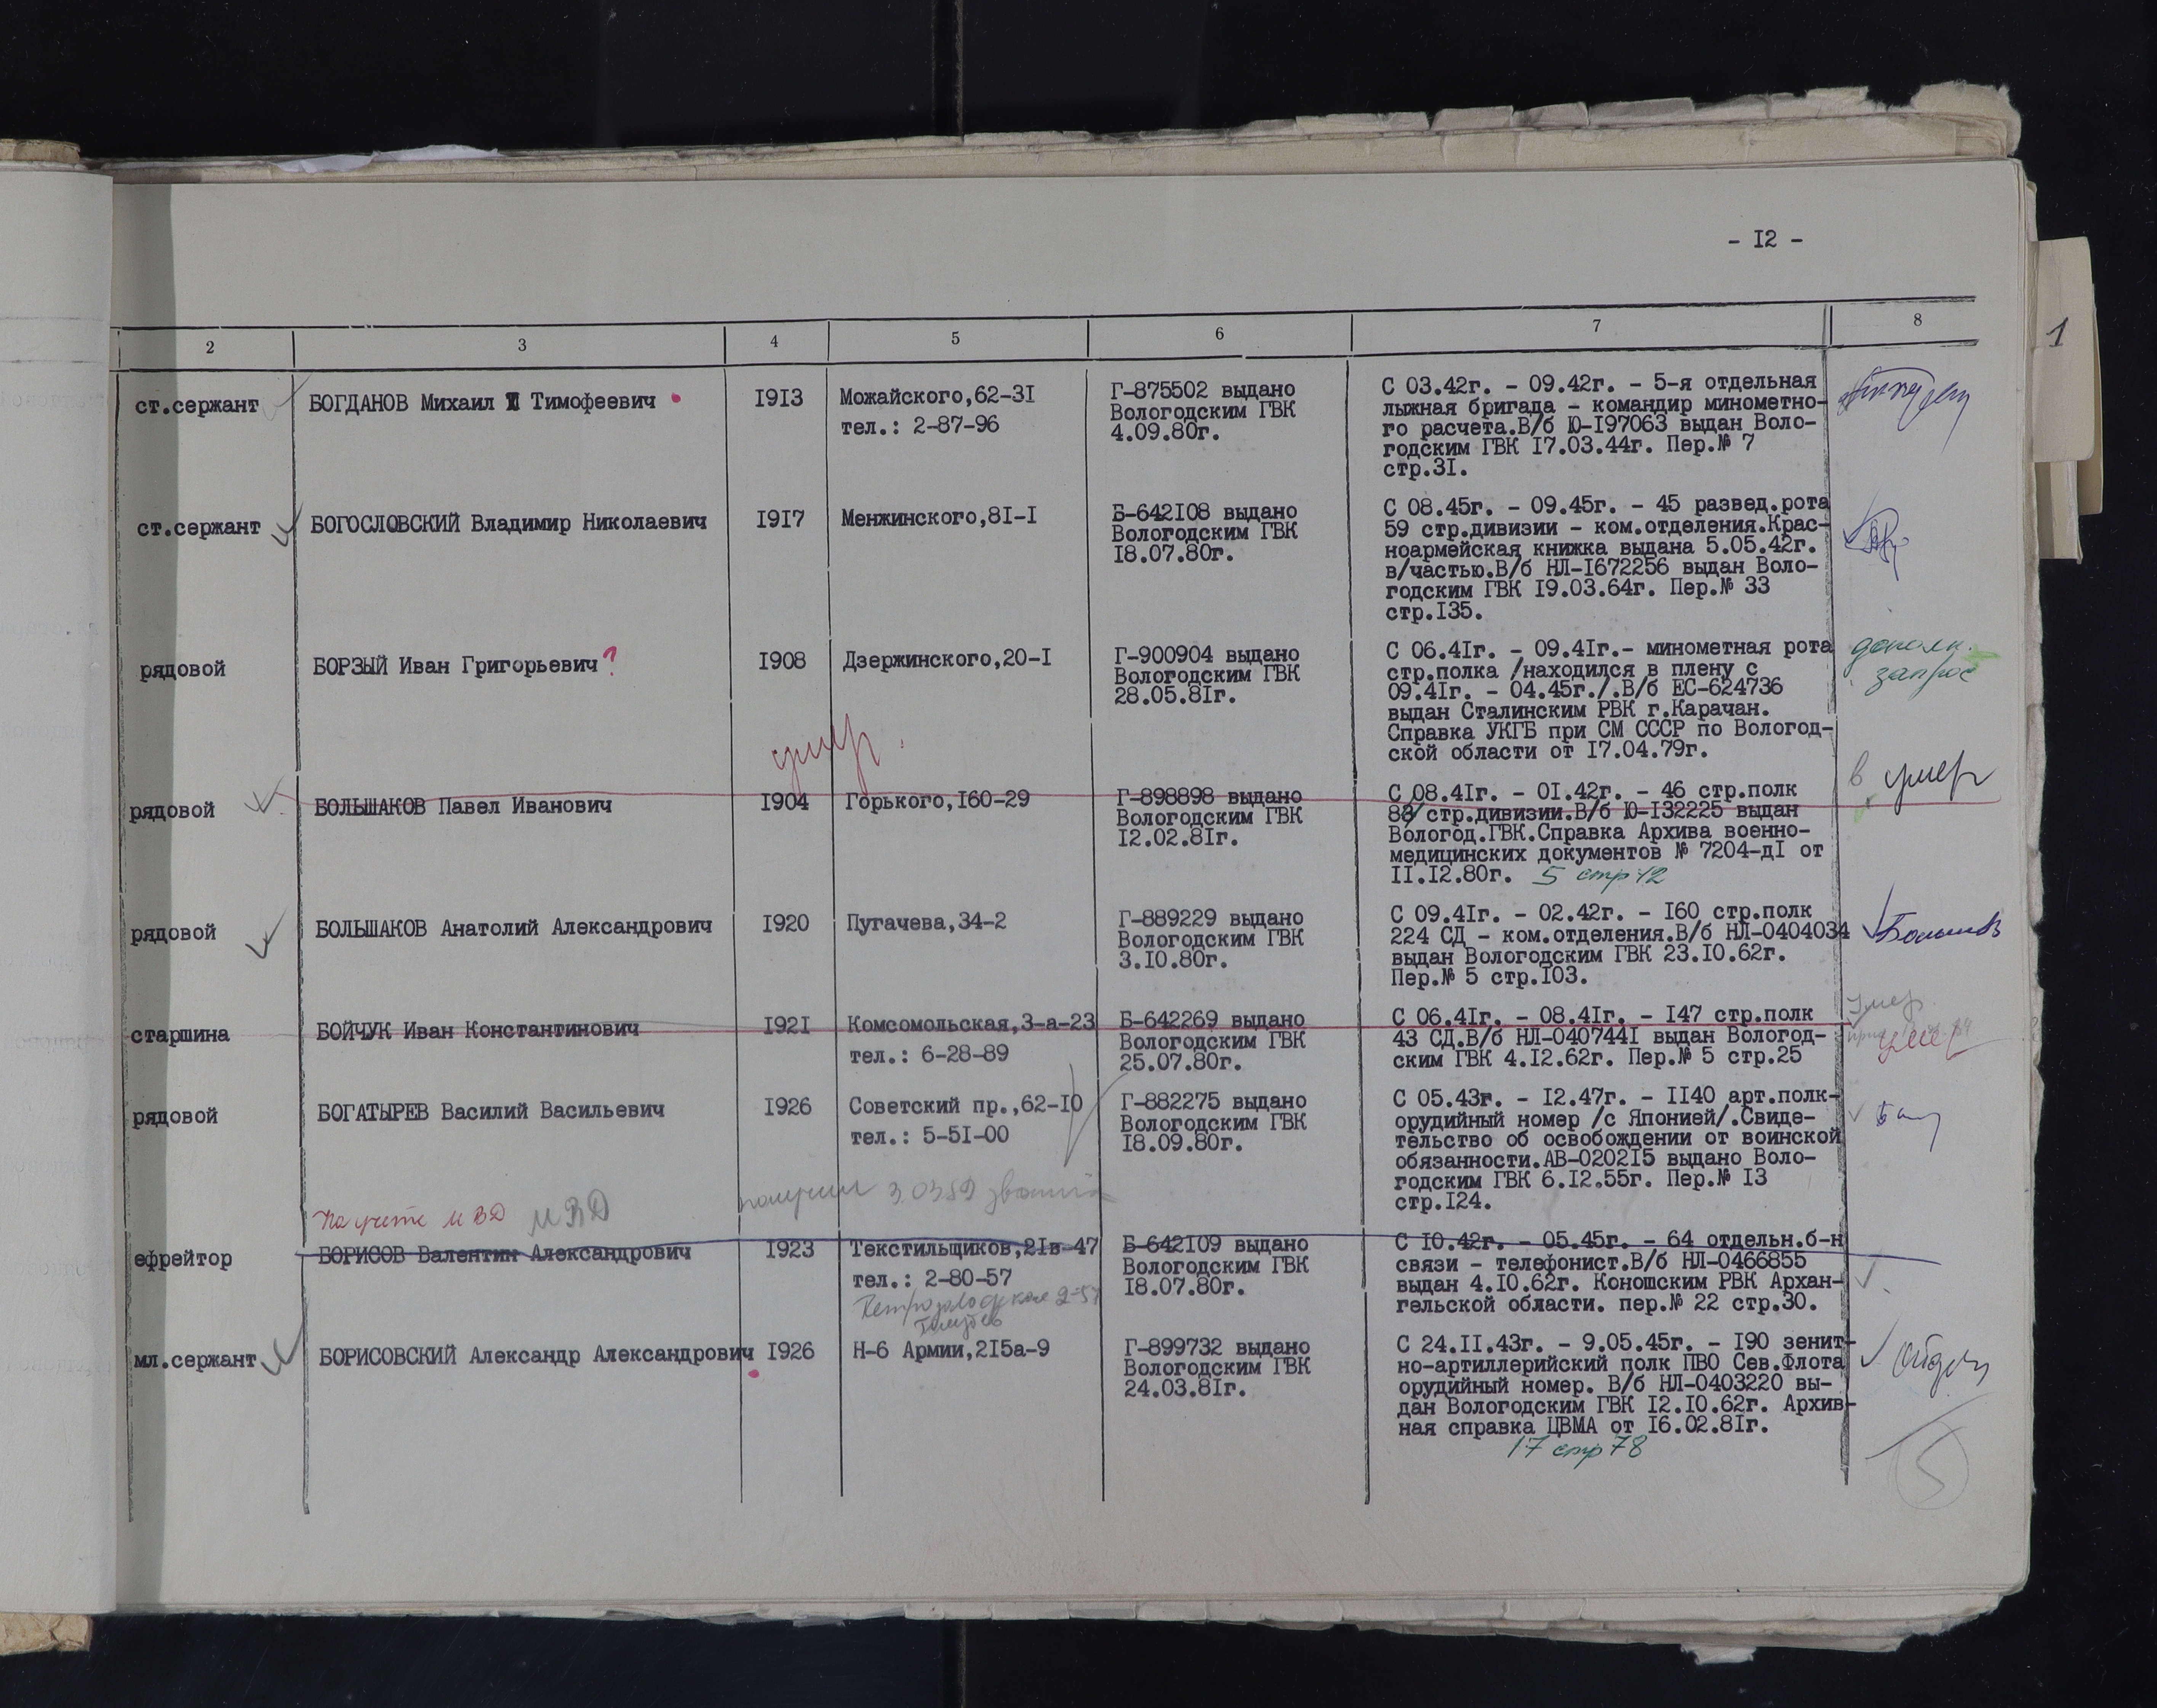 - I2 -
2 3 4 5 6 7 8
1
ст.сержант БОГДАНОВ Михаил Тимофеевич I9I3 Можайского,62-3I Г-875502 выдано С 03.42г. - 09.42г. - 5-я отдельная
тел.: 2-87-96 Вологодским ГВК лыжная бригада - командир минометно-
4.09.80г. го расчета.В/б Ю-I97063 выдан Воло-
годским ГВК I7.03.44г. Пер.№ 7
стр.3I.
ст.сержант БОГОСЛОВСКИЙ Владимир Николаевич I9I7 Менжинского,8I-I Б-642I08 выдано С 08.45г. - 09.45г. - 45 развед.рота
Вологодским ГВК 59 стр.дивизии - ком.отделения.Крас-
I8.07.80г. ноармейская книжка выдана 5.05.42г.
в/частью.В/б НЛ-I672256 выдан Воло-
годским ГВК I9.03.64г. Пер.№ 33
стр.I35.
рядовой БОРЗЫЙ Иван Григорьевич ? I908 Дзержинского,20-I Г-900904 выдано С 06.4Iг. - 09.4Iг.- минометная рота дополн.
Вологодским ГВК стр.полка /находился в плену с запрос
28.05.8Iг. 09.4Iг. - 04.45г./.В/б ЕС-624736
выдан Сталинским РВК г.Карачан.
Справка УКГБ при СМ СССР по Вологод-
ской области от I7.04.79г.
умер.
рядовой БОЛЬШАКОВ Павел Иванович I904 Горького,I60-29 Г-898898 выдано С 08.4Iг. - 0I.42г. - 46 стр.полк в умер
Вологодским ГВК 83 стр.дивизии.В/б Ю-I32225 выдан
I2.02.8Iг. Вологод.ГВК.Справка Архива военно-
медицинских документов № 7204-дI от
II.I2.80г. 5 стр 12
рядовой БОЛЬШАКОВ Анатолий Александрович I920 Пугачева,34-2 Г-889229 выдано С 09.4Iг. - 02.42г. - I60 стр.полк
Вологодским ГВК 224 СД - ком.отделения.В/б НЛ-0404034
3.I0.80г. выдан Вологодским ГВК 23.I0.62г.
Пер.№ 5 стр.I03.
старшина БОЙЧУК Иван Константинович I92I Комсомольская,3-а-23 Б-642269 выдано С 06.4Iг. - 08.4Iг. - I47 стр.полк умер
тел.: 6-28-89 Вологодским ГВК 43 СД.В/б НЛ-040744I выдан Вологод- умер
25.07.80г. ским ГВК 4.I2.62г. Пер.№ 5 стр.25
рядовой БОГАТЫРЕВ Василий Васильевич I926 Советский пр.,62-I0 Г-882275 выдано С 05.43г. - I2.47г. - II40 арт.полк-
тел.: 5-5I-00 Вологодским ГВК орудийный номер /с Японией/.Свиде-
I8.09.80г. тельство об освобождении от воинской
обязанности.АВ-0202I5 выдано Воло-
годским ГВК 6.I2.55г. Пер.№ I3
стр.I24.
На учете МВД МВД получил 3.03.89
ефрейтор БОРИСОВ Валентин Александрович I923 Текстильщиков,2Iв-47 Б-642I09 выдано С I0.42г. - 05.45г. - 64 отдельн.б-н
тел.: 2-80-57 Вологодским ГВК связи - телефонист.В/б НЛ-0466855
I8.07.80г. выдан 4.I0.62г. Коношским РВК Архан-
гельской области. пер.№ 22 стр.30.
мл.сержант БОРИСОВСКИЙ Александр Александрович I926 Н-6 Армии,2I5а-9 Г-899732 выдано С 24.II.43г. - 9.05.45г. - I90 зенит-
Вологодским ГВК но-артиллерийский полк ПВО Сев.Флота
24.03.8Iг. орудийный номер. В/б НЛ-0403220 вы-
дан Вологодским ГВК I2.I0.62г. Архив-
ная справка ЦВМА от I6.02.8Iг.
17 стр 78
5